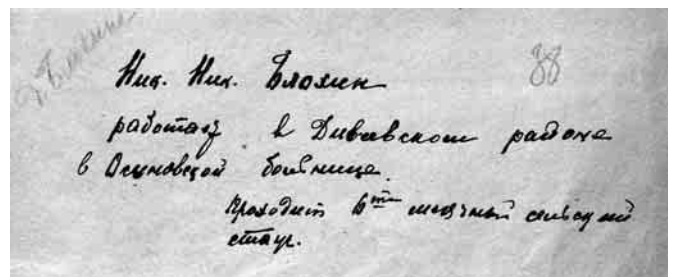 д. Блохина
88
Ник. Ник. Блохин
работает в Дивеевском районе
в Осиновской больнице.
Проходит 6ти месячный сельский
стаж.